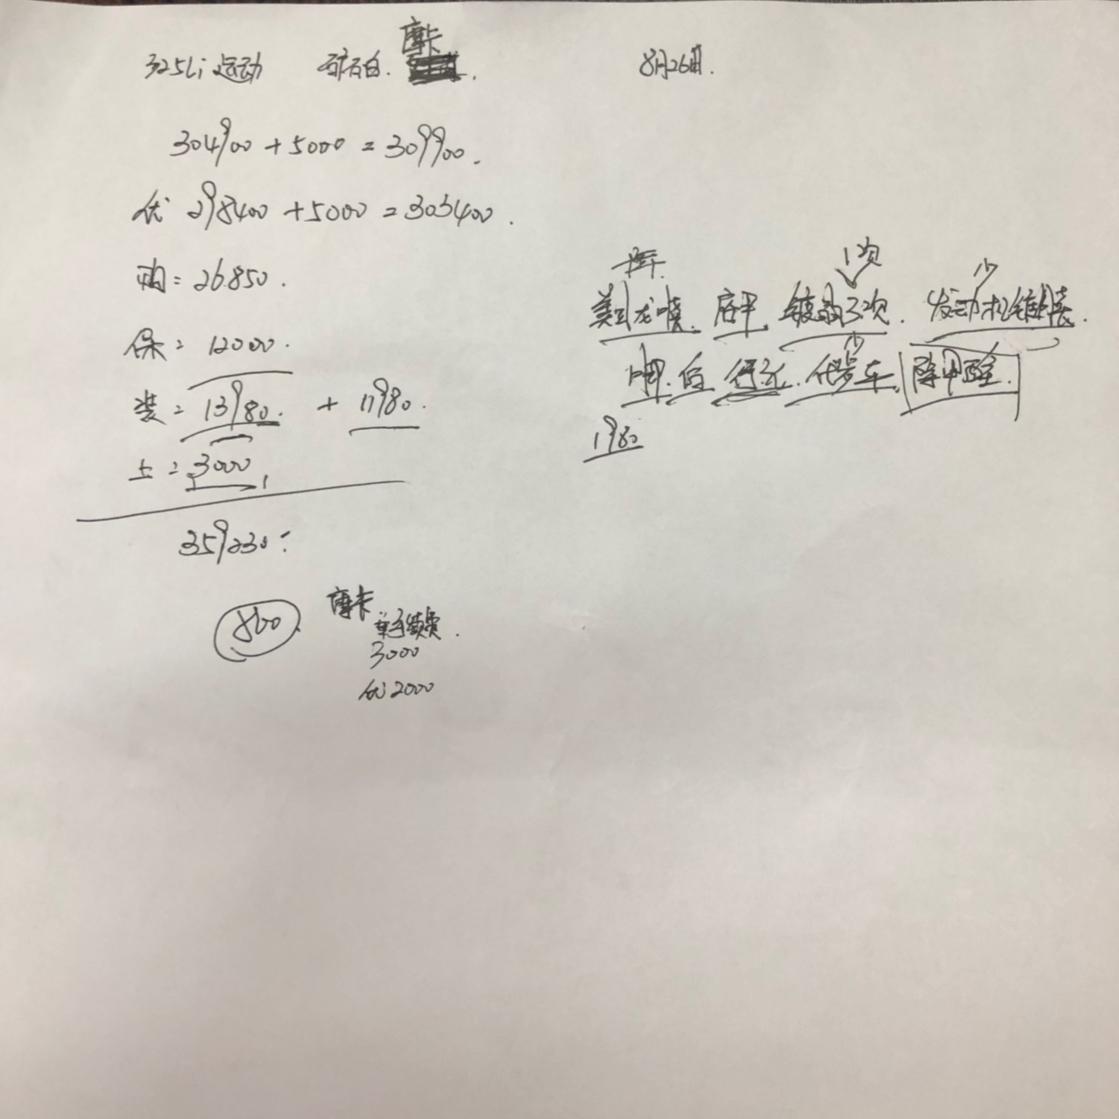 325Li 运动 矿石白. 摩卡. 8月26日.
304900 + 5000 = 309900.
优 298400 + 5000 = 303400.
购 = 26850.
保 = 12000.
装 = 13980. + 11980.
上 = 3000
359230.
800 摩卡
手续费.
3000
优2000
1次
美国龙膜 底甲 镀晶3次. 发动机镀膜.
脚. 包 代步车. 除甲醛.
1980